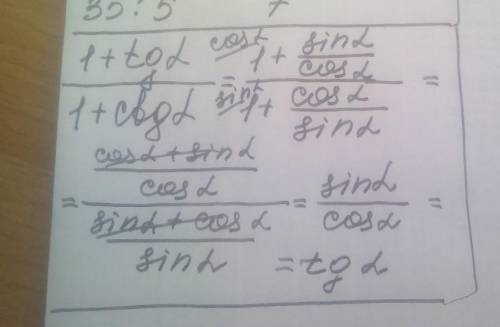 35 : 5 7
1 + tg α / 1 + ctg α = cosα 1 + sin α / cos α / sinα 1 + cos α / sin α =
= cos α + sin α / cos α / sin α + cos α / sin α = sin α / cos α =
= tg α